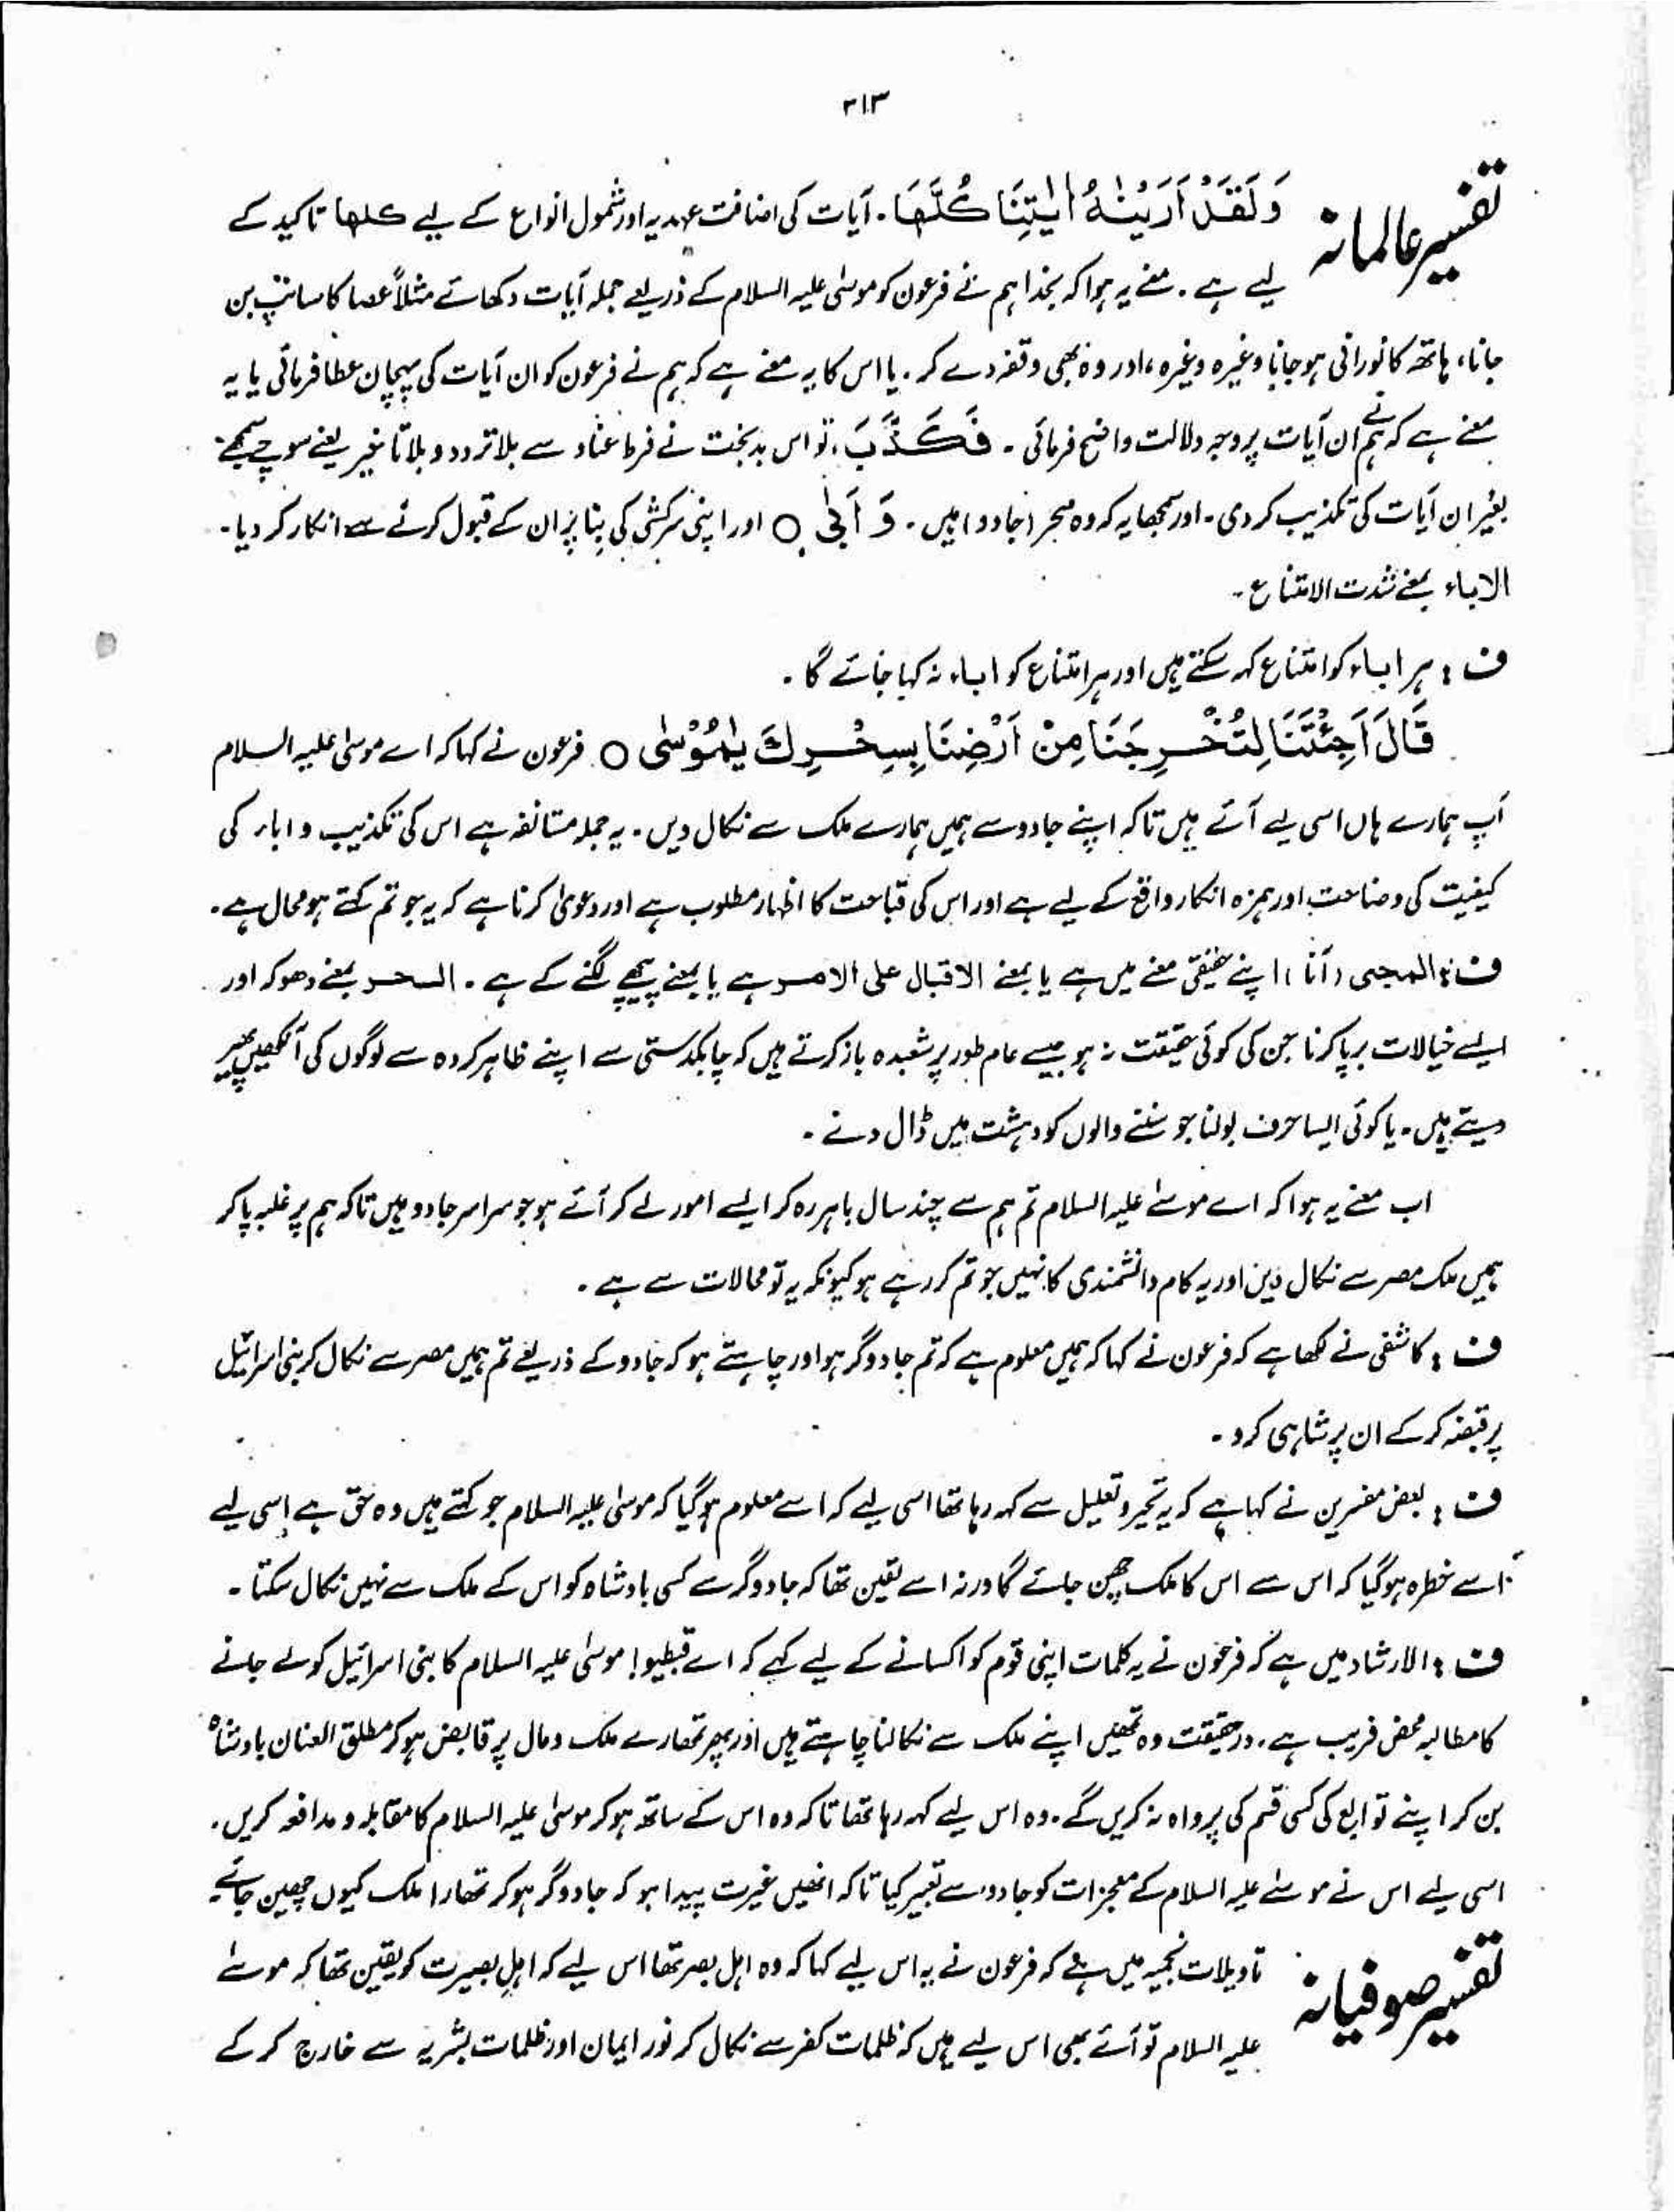 ۳۱۳
تفسیر عالمانہ
وَلَقَدْ اَرَيْنٰهُ اٰيٰتِنَا كُلَّهَا۔ آیات کی اضافت عہدیہ اور شمول انواع کے لیے کلها تاکید کے
لیے ہے۔ معنے یہ ہوا کہ بخدا ہم نے فرعون کو موسٰی علیہ السلام کے ذریعے جملہ آیات دکھائے مثلاً عصا کا سانپ بن
جانا، ہاتھ کا نورانی ہو جانا وغیرہ وغیرہ، اور وہ بھی وقفہ دے کر۔ یا اس کا یہ معنے ہے کہ ہم نے فرعون کو ان آیات کی پہچان عطا فرمائی یا یہ
معنے ہے کہ ہم نے ان آیات پر وجہ دلالت واضح فرمائی۔ فَكَذَّبَ، تو اس بدبخت نے فرط عناد سے بلا تردد و بلا تاخیر یعنے سوچے سمجھے
بغیر ان آیات کی تکذیب کر دی۔ اور سمجھا یہ کہ وہ سحر (جادو) ہیں۔ وَ اَبٰى ○ اور اپنی سرکشی کی بنا پر ان کے قبول کرنے سے انکار کر دیا۔
الاباء بمعنے شدت الامتناع۔
ف : ہر اباء کو امتناع کہہ سکتے ہیں اور ہر امتناع کو اباء نہ کہا جائے گا۔
قَالَ اَجِئْتَنَا لِتُخْرِجَنَا مِنْ اَرْضِنَا بِسِحْرِكَ يٰمُوْسٰى ○ فرعون نے کہا کہ اے موسٰی علیہ السلام
آپ ہمارے ہاں اسی لیے آئے ہیں تاکہ اپنے جادو سے ہمیں ہمارے ملک سے نکال دیں۔ یہ جملہ مستانفہ ہے اس کی تکذیب و اباء کی
کیفیت کی وضاحت اور ہمزہ انکار واقع کے لیے ہے اور اس کی قباحت کا اظہار مطلوب ہے اور دعوٰی کرنا ہے کہ یہ جو تم کہتے ہو محال ہے۔
ف : المجیئ (آنا) اپنے حقیقی معنے میں ہے یا بمعنے الاقبال علی الامر ہے یا بمعنے پیچھے لگنے کے ہے۔ السحر بمعنے دھوکہ اور
ایسے خیالات برپا کرنا جن کی کوئی حقیقت نہ ہو جیسے عام طور پر شعبدہ باز کرتے ہیں کہ چابکدستی سے اپنے ظاہر کردہ سے لوگوں کی آنکھیں پھیر
دیتے ہیں۔ یا کوئی ایسا حرف بولنا جو سننے والوں کو دہشت میں ڈال دے۔
اب معنے یہ ہوا کہ اے موسےٰ علیہ السلام تم ہم سے چند سال باہر رہ کر ایسے امور لے کر آئے ہو جو سراسر جادو ہیں تاکہ ہم پر غلبہ پا کر
ہمیں ملک مصر سے نکال دیں اور یہ کام دانشمندی کا نہیں جو تم کر رہے ہو کیونکہ یہ تو محالات سے ہے۔
ف : کاشفی نے لکھا ہے کہ فرعون نے کہا کہ ہمیں معلوم ہے کہ تم جادوگر ہو اور چاہتے ہو کہ جادو کے ذریعے تم ہمیں مصر سے نکال کر بنی اسرائیل
پر قبضہ کر کے ان پر شاہی کرو۔
ف : بعض مفسرین نے کہا ہے کہ یہ تحیر و تعلیل سے کہہ رہا تھا اسی لیے کہ اسے معلوم ہو گیا کہ موسٰی علیہ السلام جو کہتے ہیں وہ حق ہے اسی لیے
اسے خطرہ ہو گیا کہ اس سے اس کا ملک چھن جائے گا ورنہ اسے یقین تھا کہ جادوگر سے کسی بادشاہ کو اس کے ملک سے نہیں نکال سکتا۔
ف : الارشاد میں ہے کہ فرعون نے یہ کلمات اپنی قوم کو اکسانے کے لیے کہے کہ اے قبطیو! موسٰی علیہ السلام کا بنی اسرائیل کو لے جانے
کا مطالبہ محض فریب ہے۔ درحقیقت وہ تمھیں اپنے ملک سے نکالنا چاہتے ہیں اور پھر تمھارے ملک و مال پر قابض ہو کر مطلق العنان بادشاہ
بن کر اپنے توابع کی کسی قسم کی پرواہ نہ کریں گے۔ وہ اس لیے کہہ رہا تھا تاکہ وہ اس کے ساتھ ہو کر موسٰی علیہ السلام کا مقابلہ و مدافعہ کریں۔
اسی لیے اس نے موسےٰ علیہ السلام کے معجزات کو جادو سے تعبیر کیا تاکہ انھیں غیرت پیدا ہو کہ جادوگر ہو کر تمھارا ملک کیوں چھین جائے
تفسیر صوفیانہ
تاویلات نجمیہ میں ہے کہ فرعون نے یہ اس لیے کہا کہ وہ اہل بصر تھا اس لیے کہ اہل بصیرت کو یقین تھا کہ موسےٰ
علیہ السلام تو آئے بھی اس لیے ہیں کہ ظلمات کفر سے نکال کر نور ایمان اور ظلمات بشریہ سے خارج کر کے